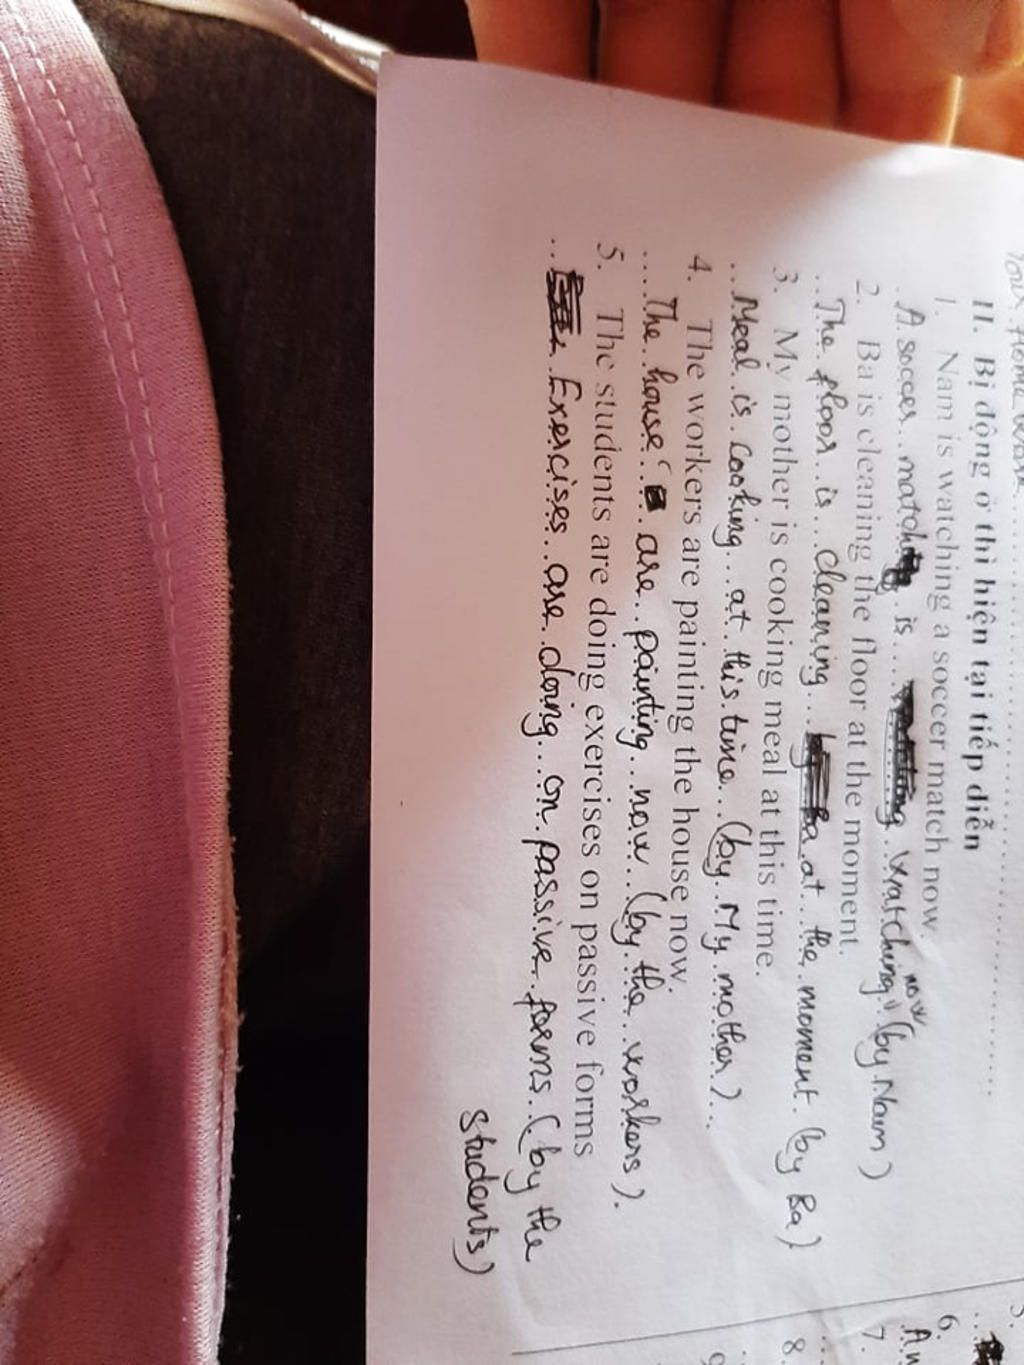 Your Home work
II. Bị động ở thì hiện tại tiếp diễn
1. Nam is watching a soccer match now.
A soccer match is watching now (by Nam)
2. Ba is cleaning the floor at the moment.
The floor is cleaning at the moment. (by Ba)
3. My mother is cooking meal at this time.
Meal is cooking at this time (by My mother)
4. The workers are painting the house now.
The house are painting now (by the workers).
5. The students are doing exercises on passive forms
Exercises are doing on passive forms (by the
students)
6.
7.
8.